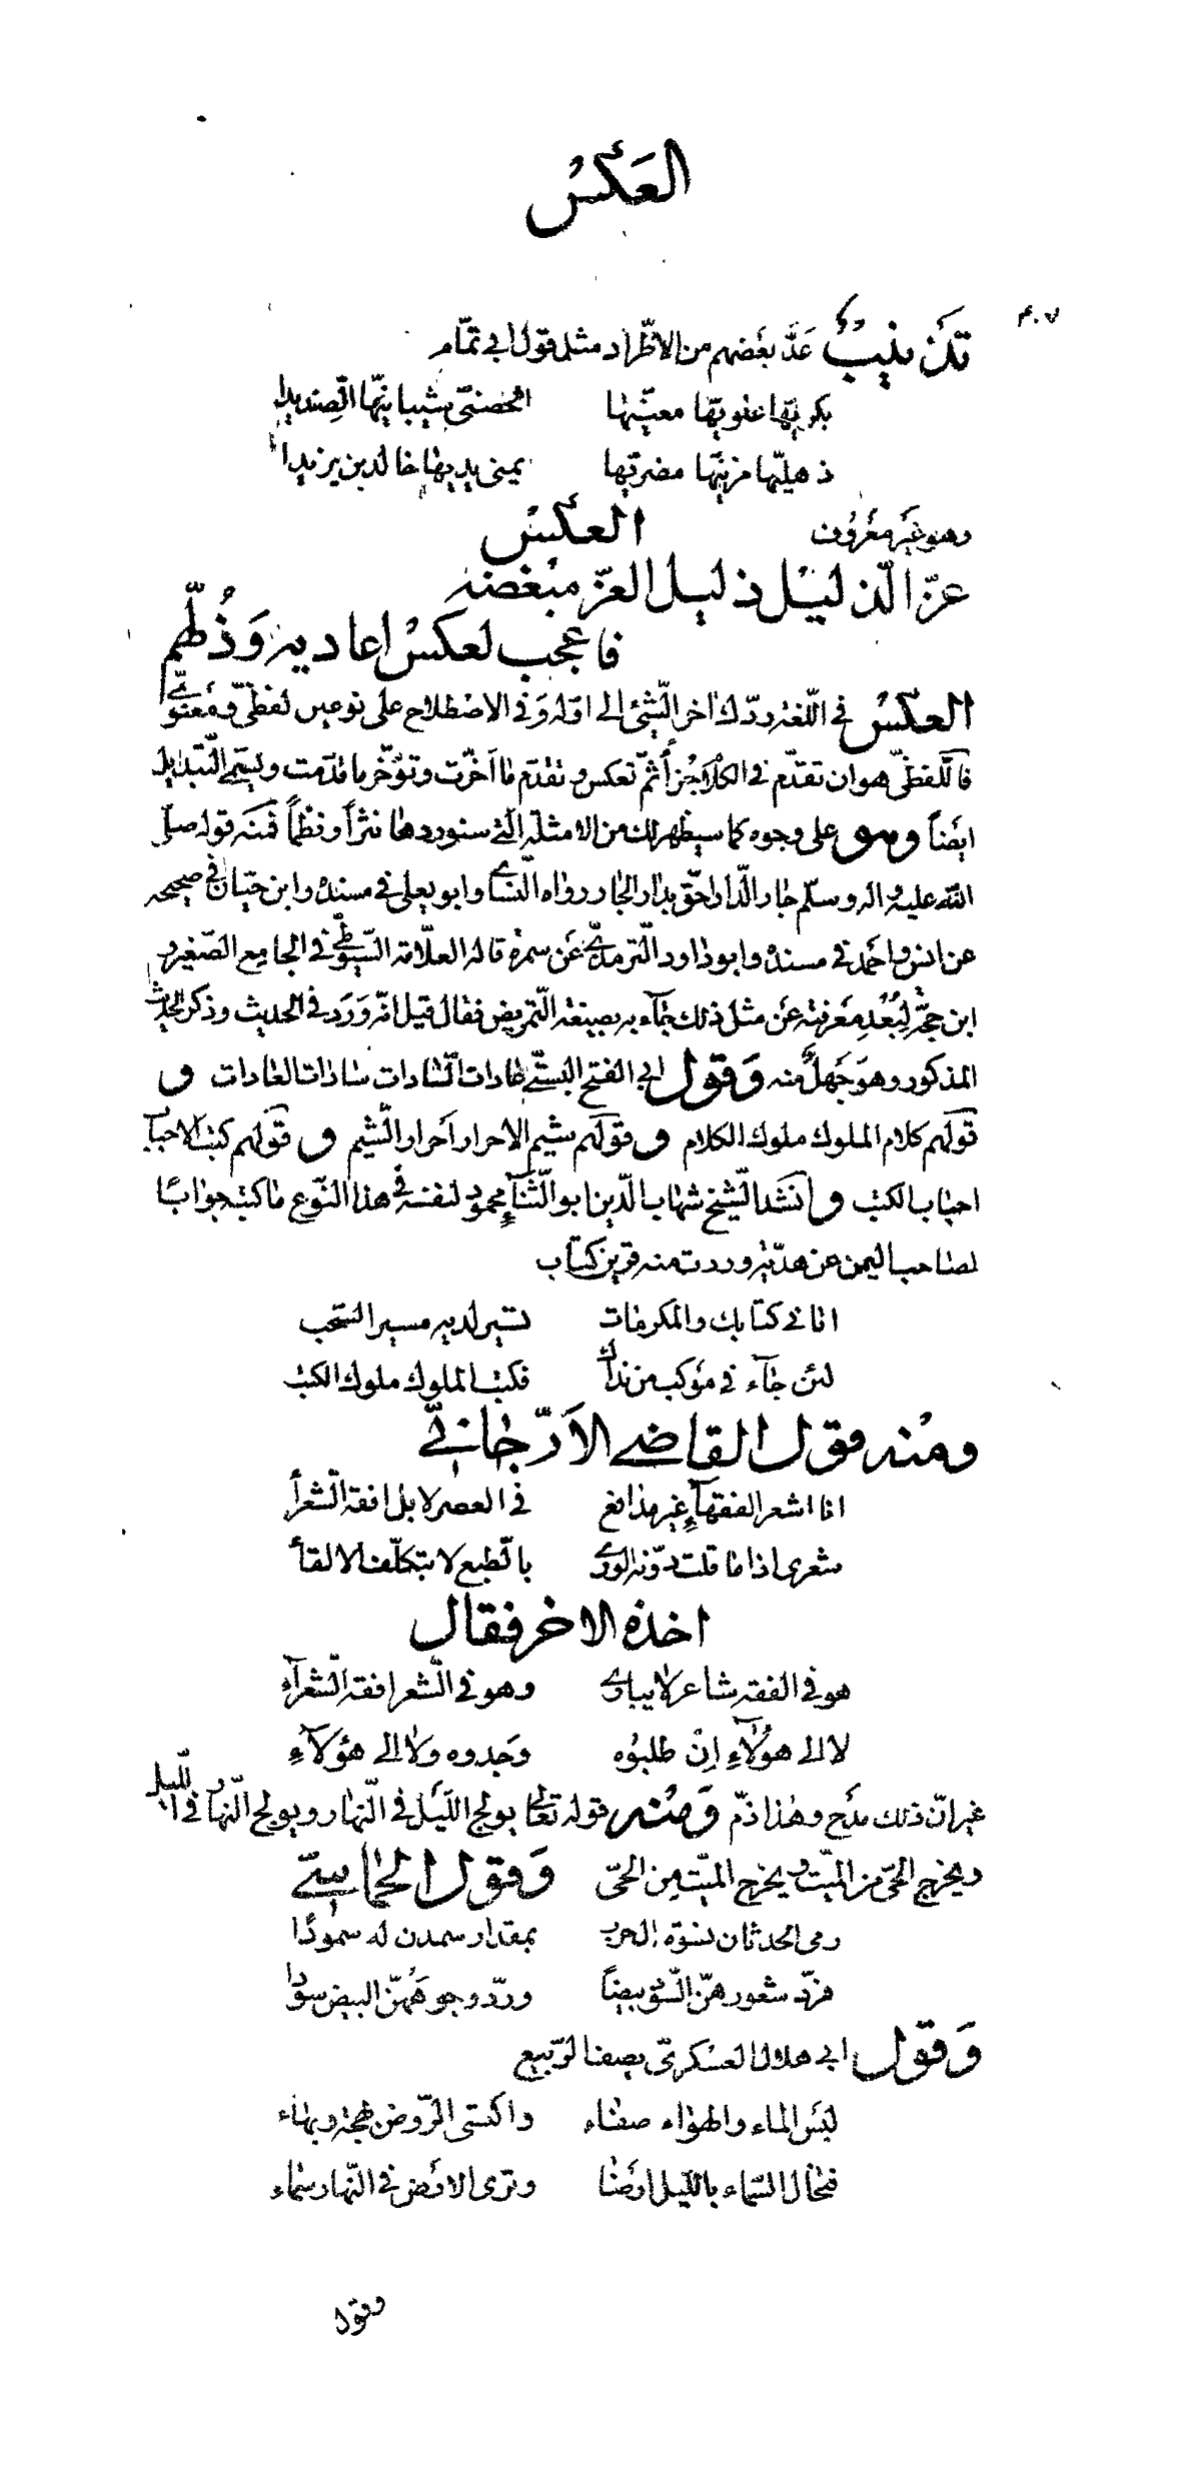 العَكسُ
٣٠٧
تذنيبٌ عَدَّ بعَضهم من الاطّراد مثل قول ابي تمّام
بكريّها علويّها صعبيّها الحصنيّ شيبانيّها الصِنديدا
ذهليّها مرّيّها مضريّها يمنى يديها خالد بن يزيدا
وهو غَير مَعرُوف العكسُ
عزّ الذليل ذليل العزّ مبغضه
فاعجب لعكسُ اعاديه وَذُلّهم
العكسُ في اللّغة ردّك اخر الشّئ الى اوّله وَفى الاصْطلاح على نوعين لفظيّ وَمَعنويّ
فاللّفظيّ هو ان تقدّم فى الكلام جُزأ ثمّ تعكس وتقدّم ما اخّرت وتؤخّر ما قدّمت ويسمّى التّبديل
ايضَاً وهو على وجوه كما سيظهر لك من الامثلة الّتى سنوردها نثراً ونظماً فمنه قوله صلى
الله عليه واله وسلّم جار الدّار احقّ بدار الجار رواه النّسائى وابو يعلى فى مسنده وابن حبّان فى صحيحه
عن انس واحمَد فى مسنده وابو داود والترمذىّ عَن سمرة قاله العلّامة السّيوطىّ فى الجامع الصّغير و
ابن حجّة لِبُعْدِ مَعرفته عَن مثل ذلك جآء به بصيغة التّمريض فقال قيل انّه وَرَدَ فى الحديث وذكر الحديث
المذكور وهو جَهلٌ منه وَقول ابى الفتح البستّى عادات السّادات سادات العادات و
قولهم كلام الملوك ملوك الكلام و قولهم شيم الاحرار اَحرار الشّيم و قولهم كتب الاحباب
احباب الكتب و انشَد الشّيخ شهاب الدّين ابو الثّنآءِ محمود لنفسه فى هذا النّوع ما كتبه جوابًا
لصاحب اليمن عن هدّية وردت منه قرين كتاب
اتانى كتابك والمكرمات تسير لديه مسير السّحب
لئن جآء فى موكب من نداك فكتب الملوك ملوك الكتب
ومنه قول القاضى الاَرّجانىّ
انا اشعر الفقهآءِ غير مدافع فى العصر لا بل افقه الشّعرأ
شعرى اذا ما قلت دوّنه الورى بالطّبع لا بتكلّف الالقأ
اخذه الاخر فقال
هو فى الفقه شاعر لا يبارى وهو فى الشّعر افقه الشّعرآءِ
لا الى هؤلآءِ اِنْ طلبوُه وَجدوه ولا الى هؤلآءِ
غير انّ ذلك مدَح وهذا ذمّ وَمنه قوله تعالى يولج اللّيَل فى النّهار ويولج النّهار فى اللّيل
ويخرج الحىّ من الميّت ويخرج الميّت من الحىّ وَقول الحماسىّ
رمى الحدثان نسوة الحرب بمقدار سمدن له سموُدًا
فردّ شعورهنّ السّود بيضاً وردّ وجوهَهُنّ البيض سوُدا
وَقول ابى هلال العسكرىّ يصف الرّبيع
لبَس الماء والهواء صفاء واكتسى الرّوض بهجة وبهاء
فتخال السّماء باللّيل ارضَا وترى الارَض فى النّهار سماء
وقول